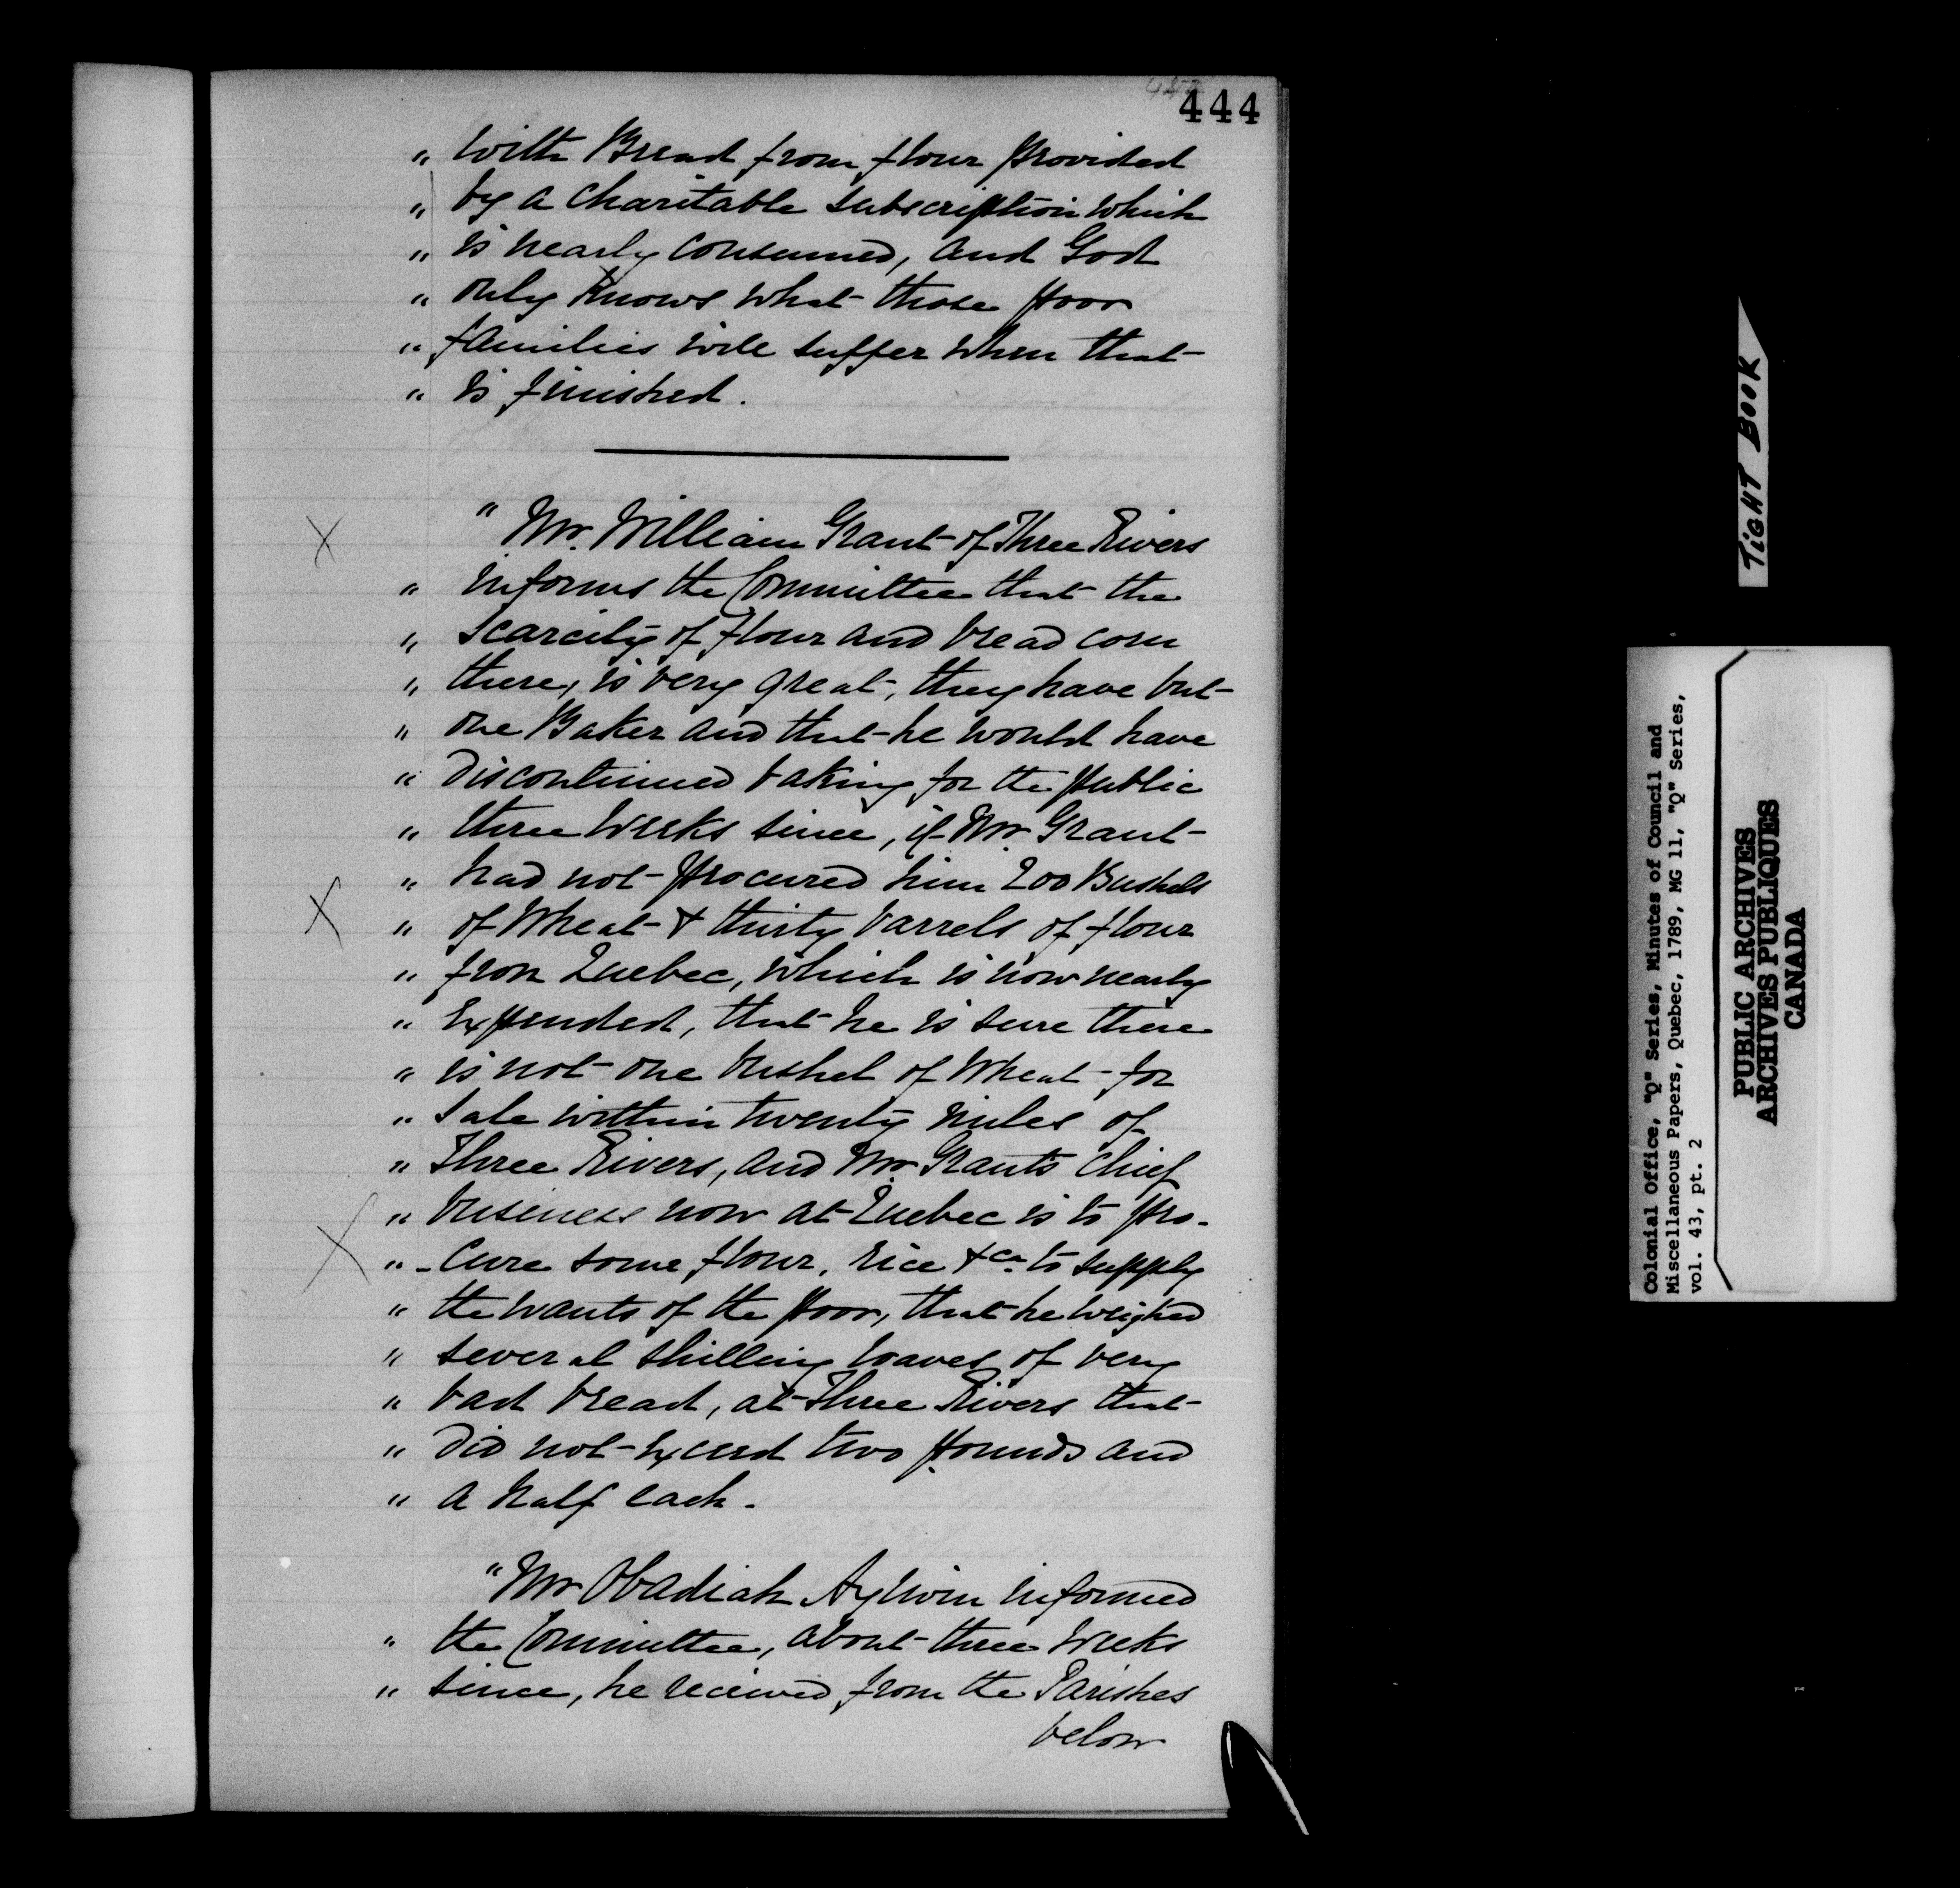 444
„ with Bread from flour provided
„ by a charitable subscription which
„ is nearly consumed, and God
„ only knows what those poor
„ families will suffer when that
„ is finished.
" Mr. William Grant of Three Rivers
„ informs the Committee that the
„ scarcity of flour and bread corn
„ there, is very great, they have but
„ one Baker and that he would have
„ discontinued baking for the public
„ three weeks since, if Mr. Grant
„ had not procured him 200 Bushels
„ of Wheat & thirty barrels of flour
„ from Quebec, which is now nearly
„ expended, that he is sure there
„ is not one bushel of Wheat for
„ sale within twenty miles of
„ Three Rivers, and Mr. Grant's chief
„ business now at Quebec is to pro-
„ -cure some flour, rice &ca. to supply
„ the wants of the poor, that he weighed
„ several shilling loaves of very
„ bad bread, at Three Rivers that
„ did not exceed two pounds and
„ a half each.
" Mr Obadiah Aylwin informed
„ the Committee, about three weeks
„ since, he received from the Parishes
below
TIGHT BOOK
Colonial Office, "Q" Series, Minutes of Council and
Miscellaneous Papers, Quebec, 1789, MG 11, "Q" Series,
vol. 43, pt. 2
PUBLIC ARCHIVES
ARCHIVES PUBLIQUES
CANADA